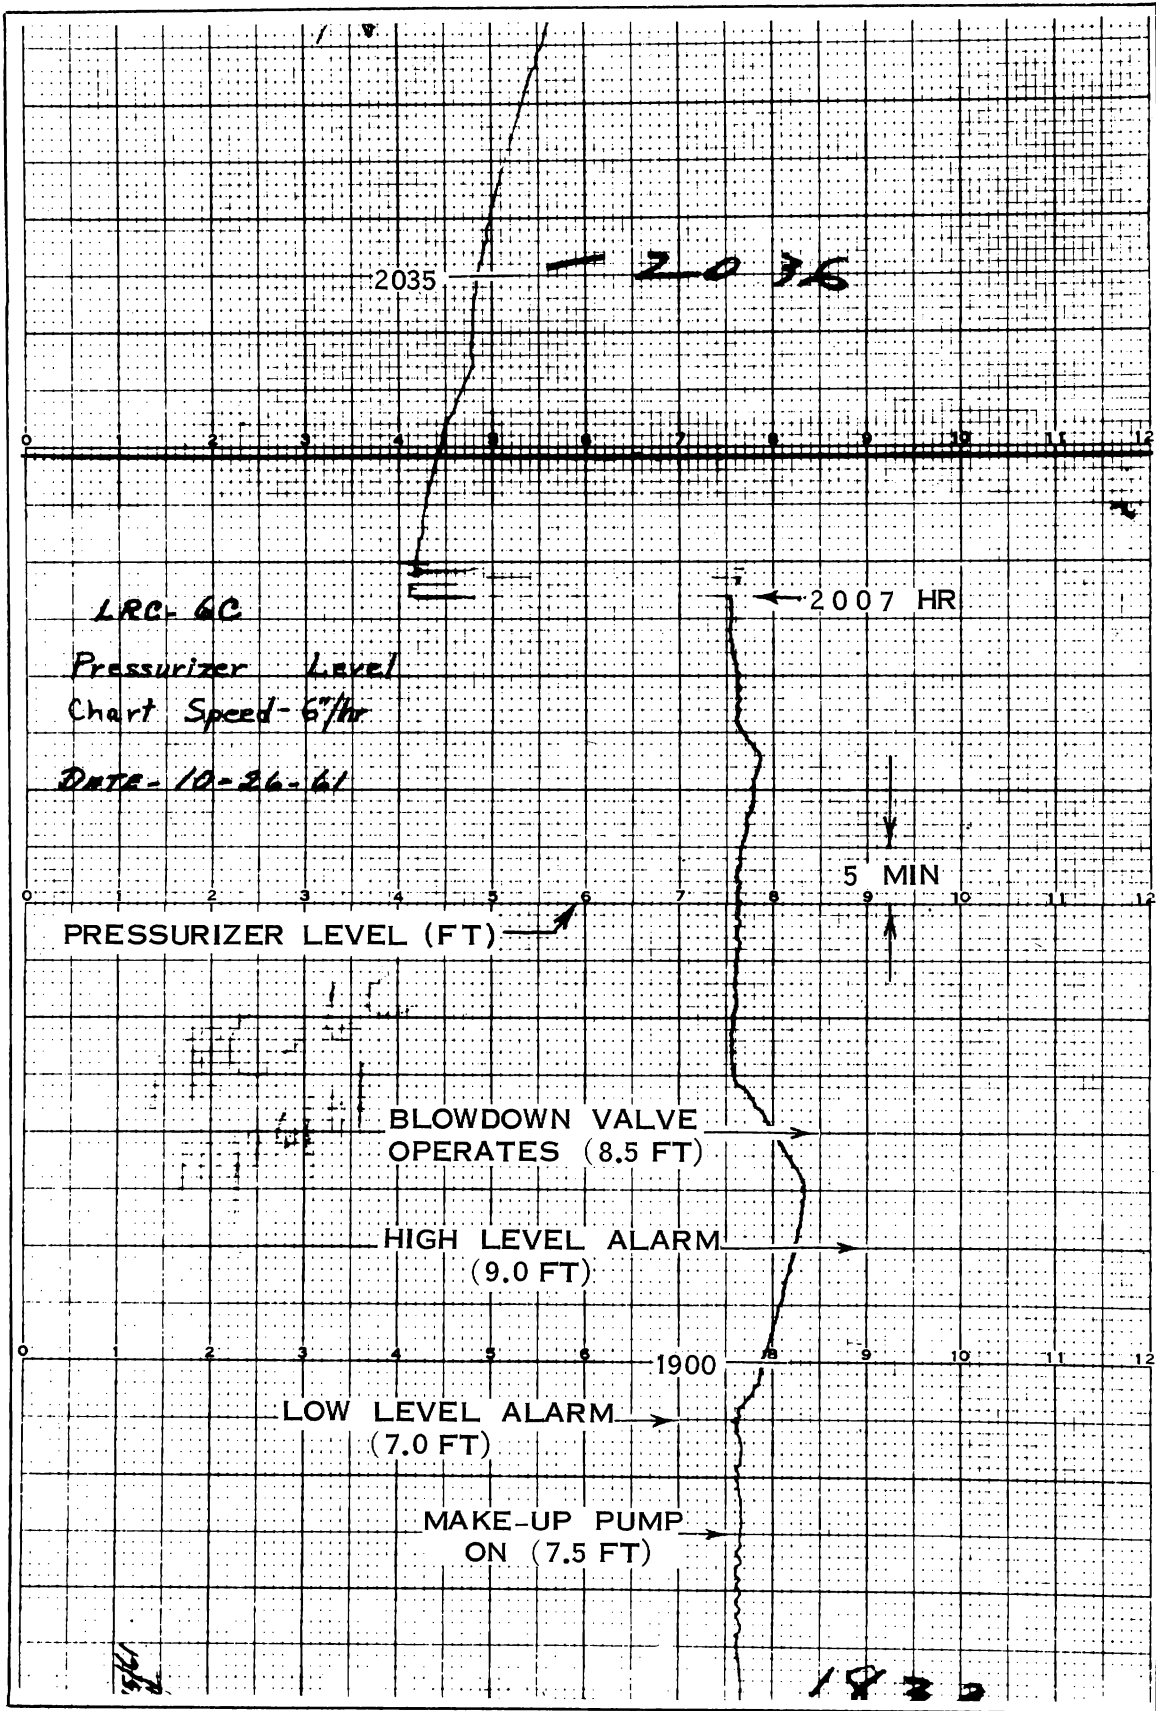 2035
2036
0 1 2 3 4 5 6 7 8 9 10 11 12
2007 HR
LRC-6C
Pressurizer Level
Chart Speed-6"/hr
DATE-10-26-61
5 MIN
0 1 2 3 4 5 6 7 8 9 10 11 12
PRESSURIZER LEVEL (FT)
BLOWDOWN VALVE
OPERATES (8.5 FT)
HIGH LEVEL ALARM
(9.0 FT)
0 1 2 3 4 5 6 7 8 9 10 11 12
1900
LOW LEVEL ALARM
(7.0 FT)
MAKE-UP PUMP
ON (7.5 FT)